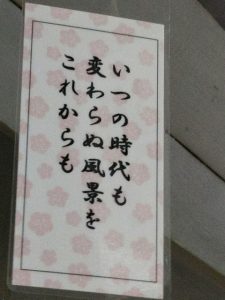 いつの時代も
変わらぬ風景を
これからも